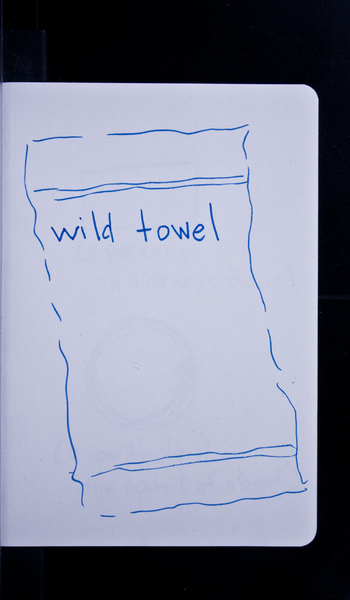 wild towel